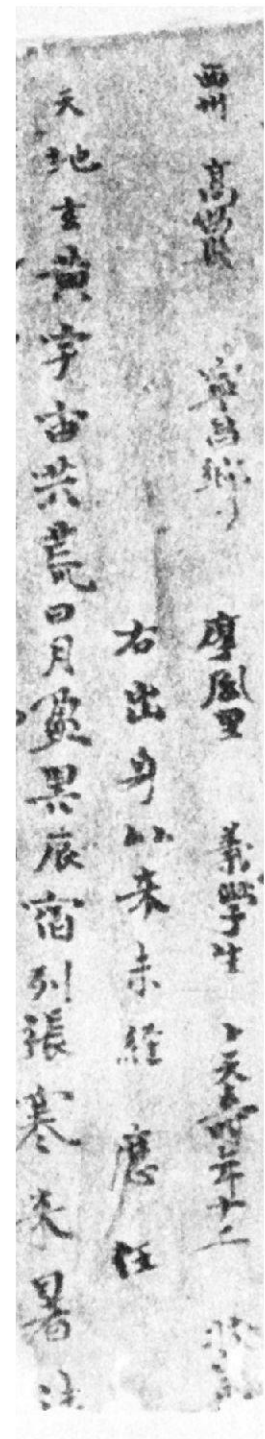 西州 高昌縣 寧昌鄉 厚風里 義學生 卜天壽年十二
右出身以來未經應任
天地玄黃宇宙共荒日月盈昃辰宿列張寒來暑往